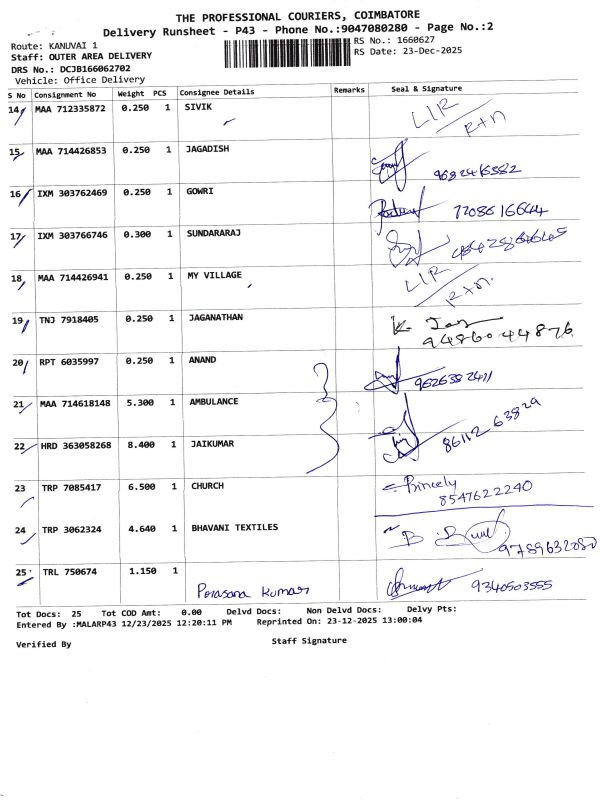 THE PROFESSIONAL COURIERS, COIMBATORE
Delivery Runsheet - P43 - Phone No.:9047080280 - Page No.:2
Route: KANUVAI 1
RS No.: 1660627
Staff: OUTER AREA DELIVERY
RS Date: 23-Dec-2025
DRS No.: DCJB166062702
Vehicle: Office Delivery
S No Consignment No Weight PCS Consignee Details Remarks Seal & Signature
14 MAA 712335872 0.250 1 SIVIK LIR
R+n
15 MAA 714426853 0.250 1 JAGADISH
16 IXM 303762469 0.250 1 GOWRI
17 IXM 303766746 0.300 1 SUNDARARAJ
18 MAA 714426941 0.250 1 MY VILLAGE LIR
R+n.
19 TNJ 7918405 0.250 1 JAGANATHAN
94860 44876
20 RPT 6035997 0.250 1 ANAND
21 MAA 714618148 5.300 1 AMBULANCE
22 HRD 363058268 8.400 1 JAIKUMAR
23 TRP 7085417 6.500 1 CHURCH Princely
8547622240
24 TRP 3062324 4.640 1 BHAVANI TEXTILES
25 TRL 750674 1.150 1
Kumar 9340503555
Tot Docs: 25 Tot COD Amt: 0.00 Delvd Docs: Non Delvd Docs: Delvy Pts:
Entered By :MALARP43 12/23/2025 12:20:11 PM Reprinted On: 23-12-2025 13:00:04
Verified By
Staff Signature